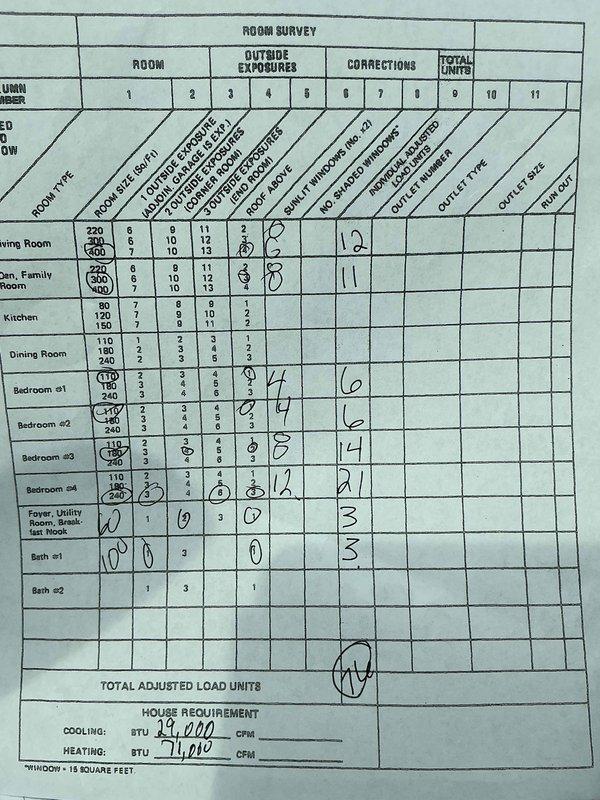 ROOM SURVEY
ROOM OUTSIDE EXPOSURES CORRECTIONS TOTAL UNITS
LUMN MBER 1 2 3 4 5 6 7 8 9 10 11
ED
O
OW
ROOM TYPE
ROOM SIZE (Sq/Ft)
1 OUTSIDE EXPOSURE (ADJOIN. GARAGE IS EXP.)
2 OUTSIDE EXPOSURES (CORNER ROOM)
3 OUTSIDE EXPOSURES (END ROOM)
ROOF ABOVE
SUNLIT WINDOWS (No. x2)
NO. SHADED WINDOWS*
INDIVIDUAL ADJUSTED LOAD UNITS
OUTLET NUMBER
OUTLET TYPE
OUTLET SIZE
RUN OUT
220 6 9 11 2
iving Room 300 6 10 12 3 12
400 7 10 13 4
220 6 9 11 2 8
Den, Family Room 300 6 10 12 3 11
400 7 10 13 4
80 7 8 9 1
Kitchen 120 7 9 10 2
150 7 9 11 2
110 1 2 3 1
Dining Room 180 2 3 4 2
240 2 3 5 3
110 2 3 4 1
Bedroom #1 180 3 4 5 2 4 6
240 3 4 6 3
110 2 3 4
Bedroom #2 180 3 4 5 2 4 6
240 3 4 6 3
110 2 3 4 1
Bedroom #3 180 3 4 5 2 8 14
240 3 4 6 3
110 2 3 4 1
Bedroom #4 180 3 4 5 2 12 21
240 3 4 6 3
Foyer, Utility Room, Break-fast Nook 60 1 2 3 1 3
Bath #1 100 1 3 1 3
Bath #2 1 3 1
TOTAL ADJUSTED LOAD UNITS 76
HOUSE REQUIREMENT
COOLING: BTU 29,000 CFM
HEATING: BTU 71,000 CFM
*WINDOW = 15 SQUARE FEET.